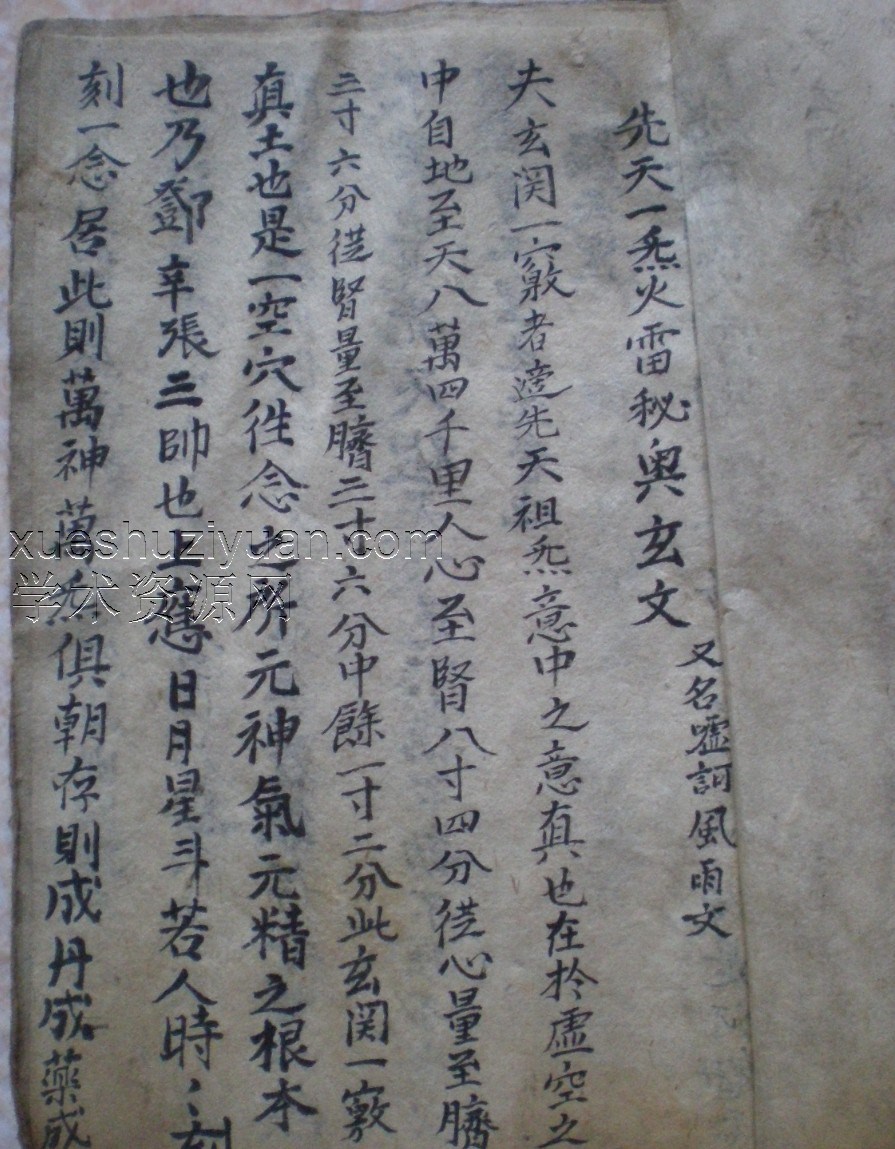 先天一炁火雷秘奥玄文
又名嘘訶風雨文
夫玄関一竅者逹先天祖炁意中之意真也在於虚空之
中自地至天八萬四千里人心至腎八寸四分從心量至臍
三寸六分從腎量至臍三寸六分中餘一寸二分此玄関一竅
真土也是一空穴性念之所元神氣元精之根本
也乃鄧辛張三帥也上應日月星斗若人時〻刻
刻一念居此則萬神萬炁俱朝存則成丹成藥成
xueshuziyuan.com
学术资源网